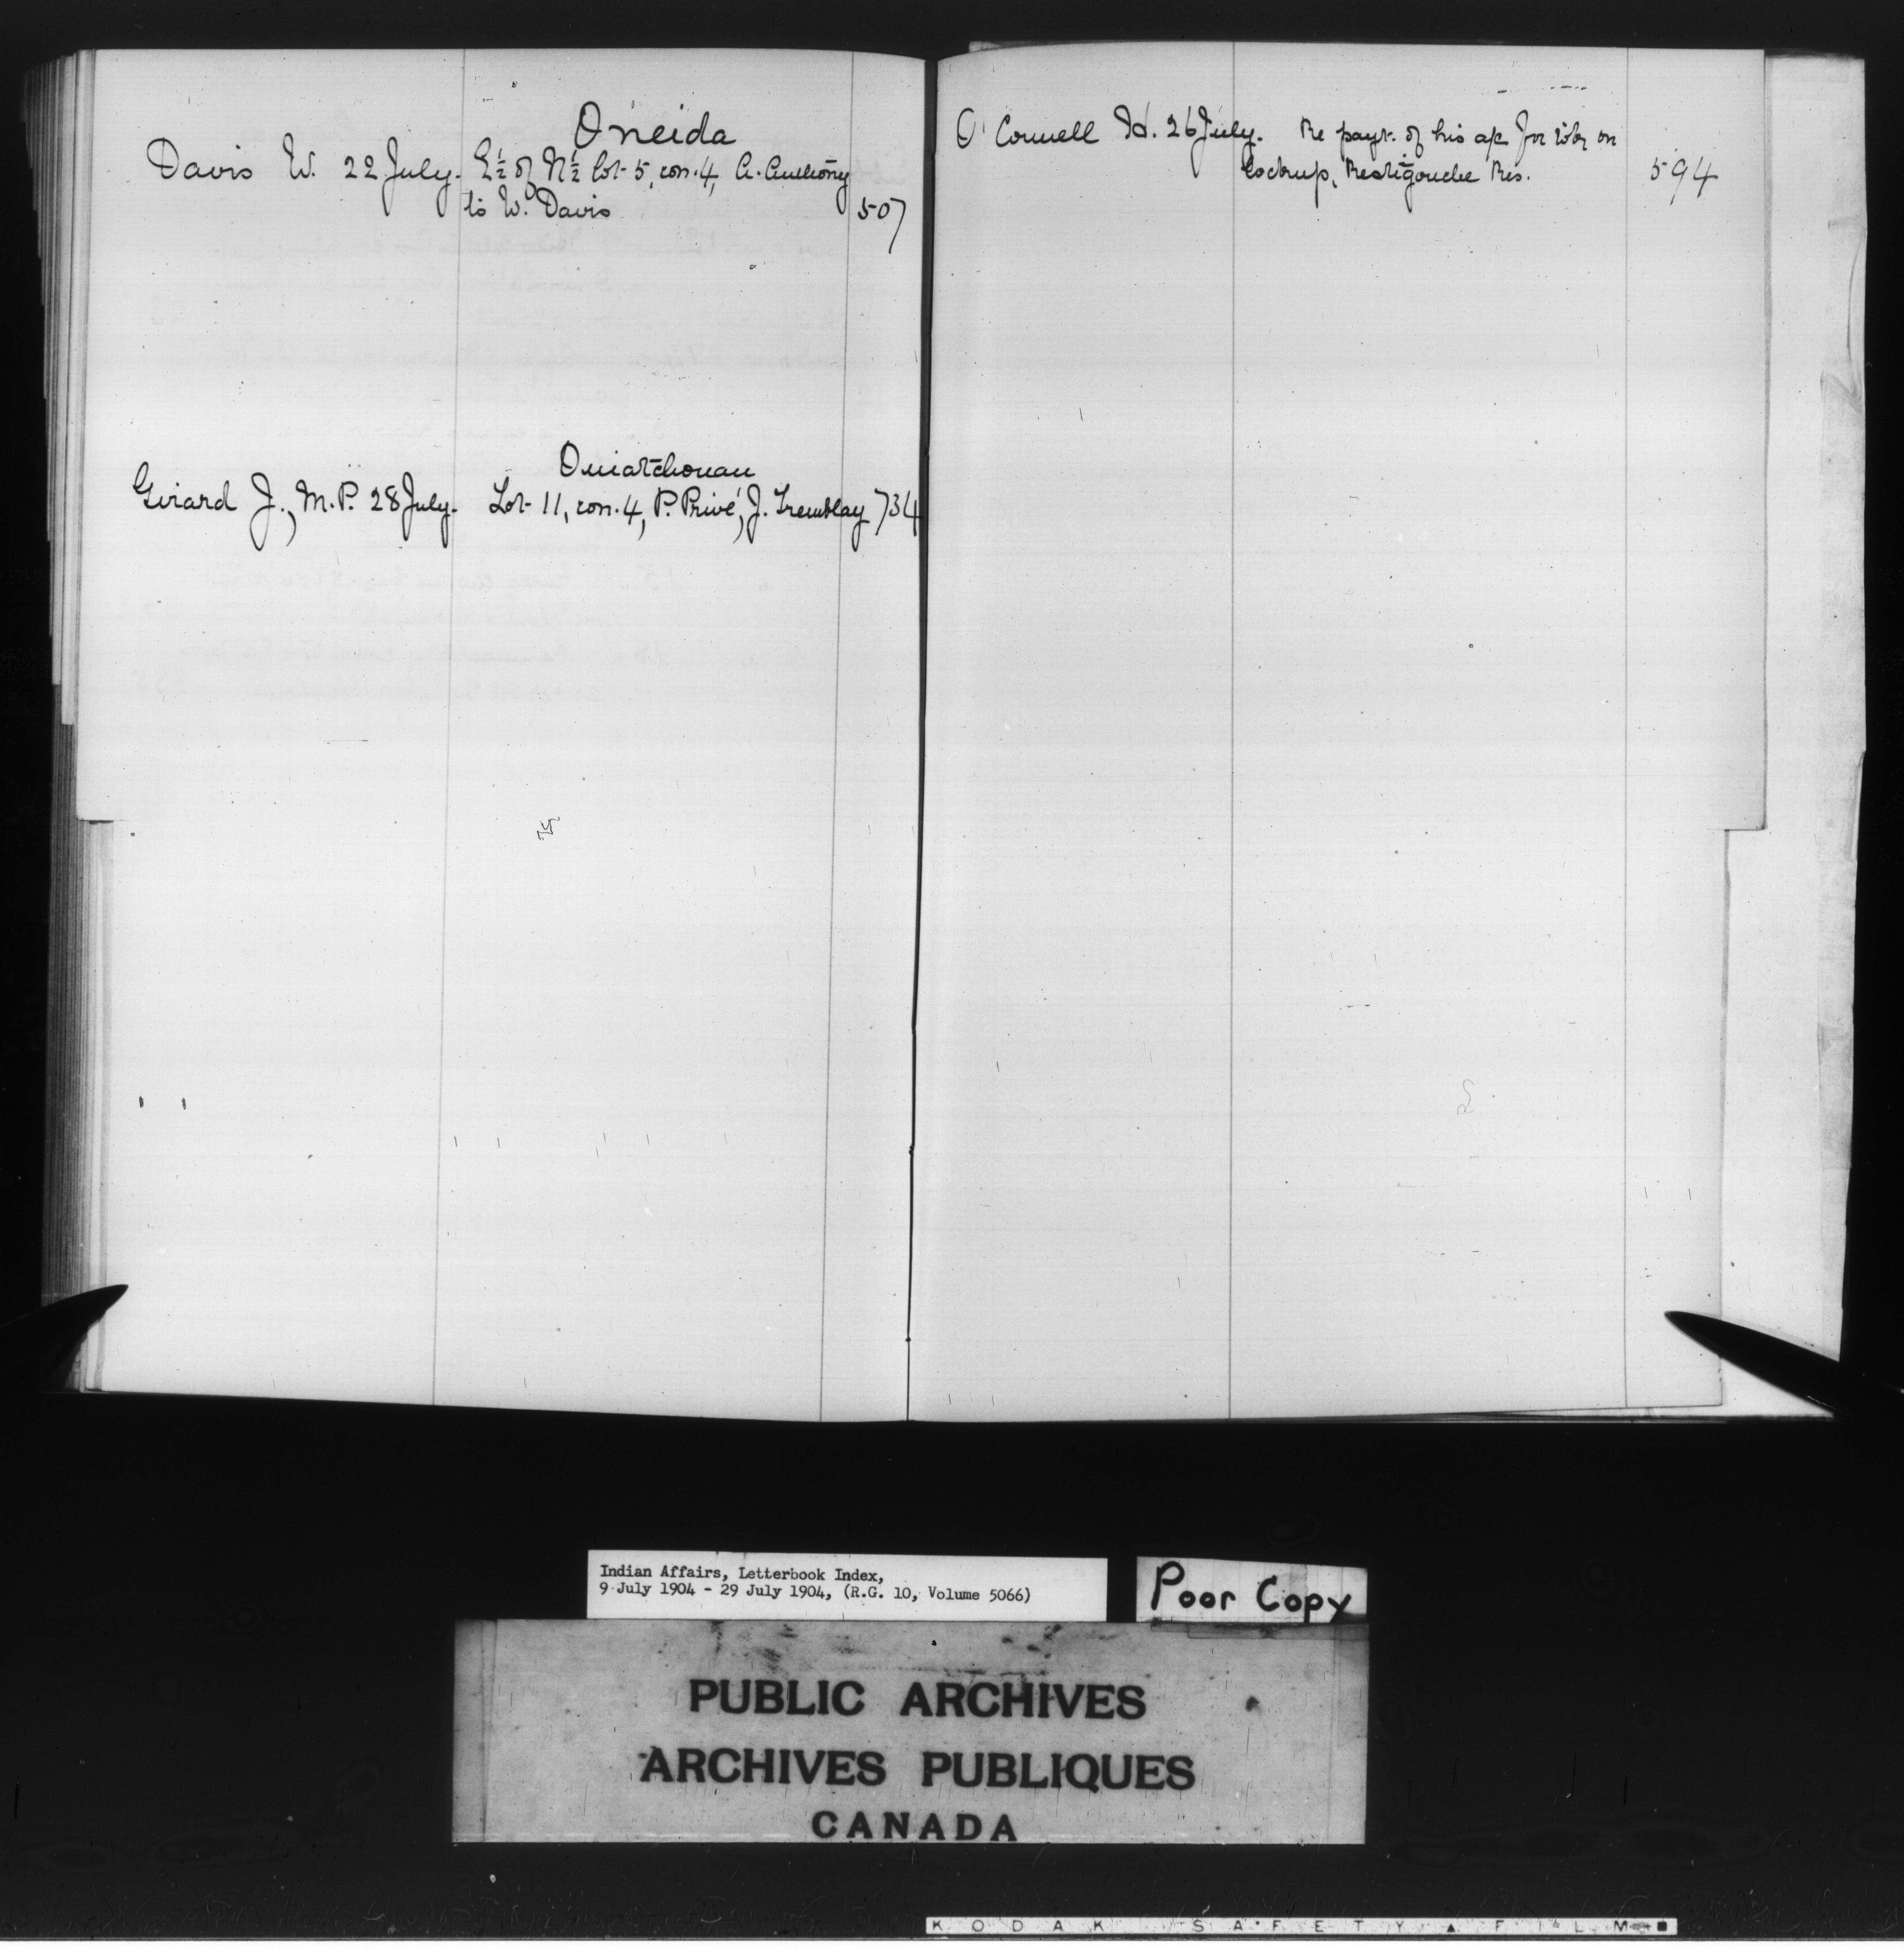 Oneida
Davis W. 22 July. E½ of N½ lot 5, con. 4, A. Anthony
to W. Davis 507
Ouiatchouan
Girard J., M.P. 28 July. Lot 11, con. 4, P. Privé, J. Tremblay 734
O'Connell H. 26 July. Re payt. of his a/c for work on
lockup, Restigouche Res. 594
Indian Affairs, Letterbook Index,
9 July 1904 - 29 July 1904, (R.G. 10, Volume 5066)
Poor Copy
PUBLIC ARCHIVES
ARCHIVES PUBLIQUES
CANADA
KODAK SAFETY ▲ FILM